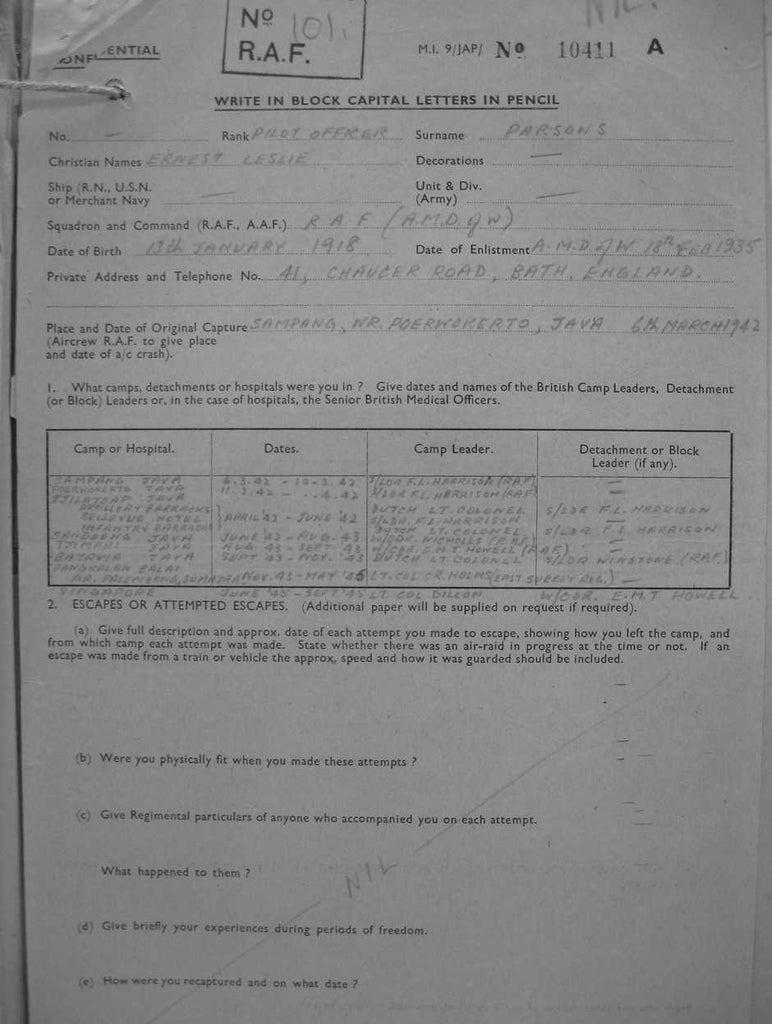 NIL.
No 101.
R.A.F.
ENTIAL
M.I. 9/JAP/ No 10411 A
WRITE IN BLOCK CAPITAL LETTERS IN PENCIL
No. — Rank PILOT OFFICER Surname PARSONS
Christian Names ERNEST LESLIE Decorations —
Ship (R.N., U.S.N. or Merchant Navy —
Unit & Div. (Army) —
Squadron and Command (R.A.F., A.A.F.) RAF (A.M.D of W)
Date of Birth 13th JANUARY 1918 Date of Enlistment A.M.D of W 18th FEB 1935
Private Address and Telephone No. 41, CHAUCER ROAD, BATH, ENGLAND.
Place and Date of Original Capture SAMPANG, NR. POERWOKERTO, JAVA 6th MARCH 1942
(Aircrew R.A.F. to give place
and date of a/c crash).
1. What camps, detachments or hospitals were you in ? Give dates and names of the British Camp Leaders, Detachment
(or Block) Leaders or, in the case of hospitals, the Senior British Medical Officers.
Camp or Hospital. Dates. Camp Leader. Detachment or Block Leader (if any).
SAMPANG JAVA 6.3.42 – 10.3.42 S/LDR F.L. HARRISON (RAF) —
POERWOKERTO JAVA 11.3.42 – ..4.42 S/LDR F.L. HARRISON (RAF) —
TJILATJAP JAVA
ARTILLERY BARRACKS DUTCH LT COLONEL S/LDR F.L. HARRISON
BELLEVUE HOTEL } APRIL '42 – JUNE '42 S/LDR F.L. HARRISON —
INFANTRY BARRACKS DUTCH LT. COLONEL S/LDR F.L. HARRISON
BANDOENG JAVA JUNE '42 – AUG. 43 W/CDR. NICHOLLS (R.A.F.) —
TJIMAHI JAVA AUG. 43 – SEPT. 43 W/CDR. E.M.T HOWELL (RAF) —
BATAVIA JAVA SEPT 43 – NOV. '43 DUTCH LT COLONEL S/LDR WINSTONE (RAF)
PANGKALAN BALAI
NR. PALEMBANG, SUMATRA NOV. 43 – MAY '45 LT. COL C.R. HOLMES (EAST SURREY REG.) —
SINGAPORE JUNE '45 – SEPT '45 LT. COL DILLON W/CDR. E.M.T HOWELL
2. ESCAPES OR ATTEMPTED ESCAPES. (Additional paper will be supplied on request if required).
(a) Give full description and approx. date of each attempt you made to escape, showing how you left the camp, and
from which camp each attempt was made. State whether there was an air-raid in progress at the time or not. If an
escape was made from a train or vehicle the approx, speed and how it was guarded should be included.
(b) Were you physically fit when you made these attempts ?
(c) Give Regimental particulars of anyone who accompanied you on each attempt.
What happened to them ?
NIL
(d) Give briefly your experiences during periods of freedom.
(e) How were you recaptured and on what date ?